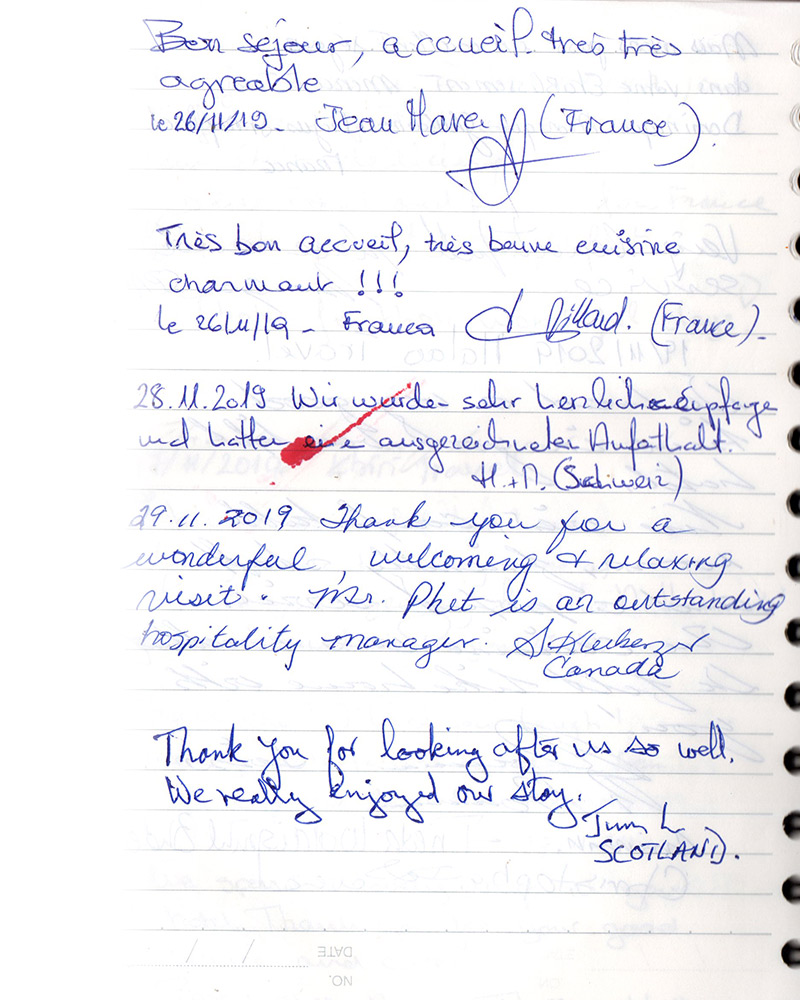 Bon séjour, accueil très très
agréable
le 26/11/19 - Jean (France).
Très bon accueil, très bonne cuisine
charmant !!!
le 26/11/19 - France (France).
28.11.2019 Wir wurden sehr herzlich empfange
und hatten eine ausgezeichneten Aufethalt.
H.+M. (Schweiz)
29.11.2019 Thank you for a
wonderful, welcoming & relaxing
visit. Mr. Phet is an outstanding
hospitality manager.
Canada
Thank you for looking after us so well.
We really enjoyed our stay.
SCOTLAND.
DATE
NO.